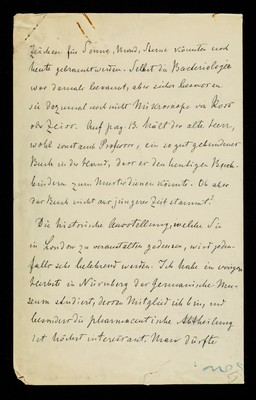 Zeichen für Sonne, Mond, Sterne könnten noch
heute gebraucht werden. Selbst die Bacteriologie
war damals bekannt, aber sicher besassen
sie dazumal noch nicht Mikroskope von
oder Zeiss. Auf pag. 13. hält der alte Herr,
wohl sonst auch Professor, ein so gut gebundenes
Buch in der Hand, dass er den heutigen Buch-
bindern zum Muster dienen könnte. Ob aber
das Buch nicht aus jüngerer Zeit stammt!
Die historische Ausstellung, welche Sie
in London zu veranstalten gedenken, wird jeden-
falls sehr belehrend werden. Ich habe im vorigen
Herbst in Nürnberg das Germanische Mu-
seum studiert, dessen Mitglied ich bin, und
besonders die pharmaceutische Abtheilung
ist höchst interessant. Man dürfte